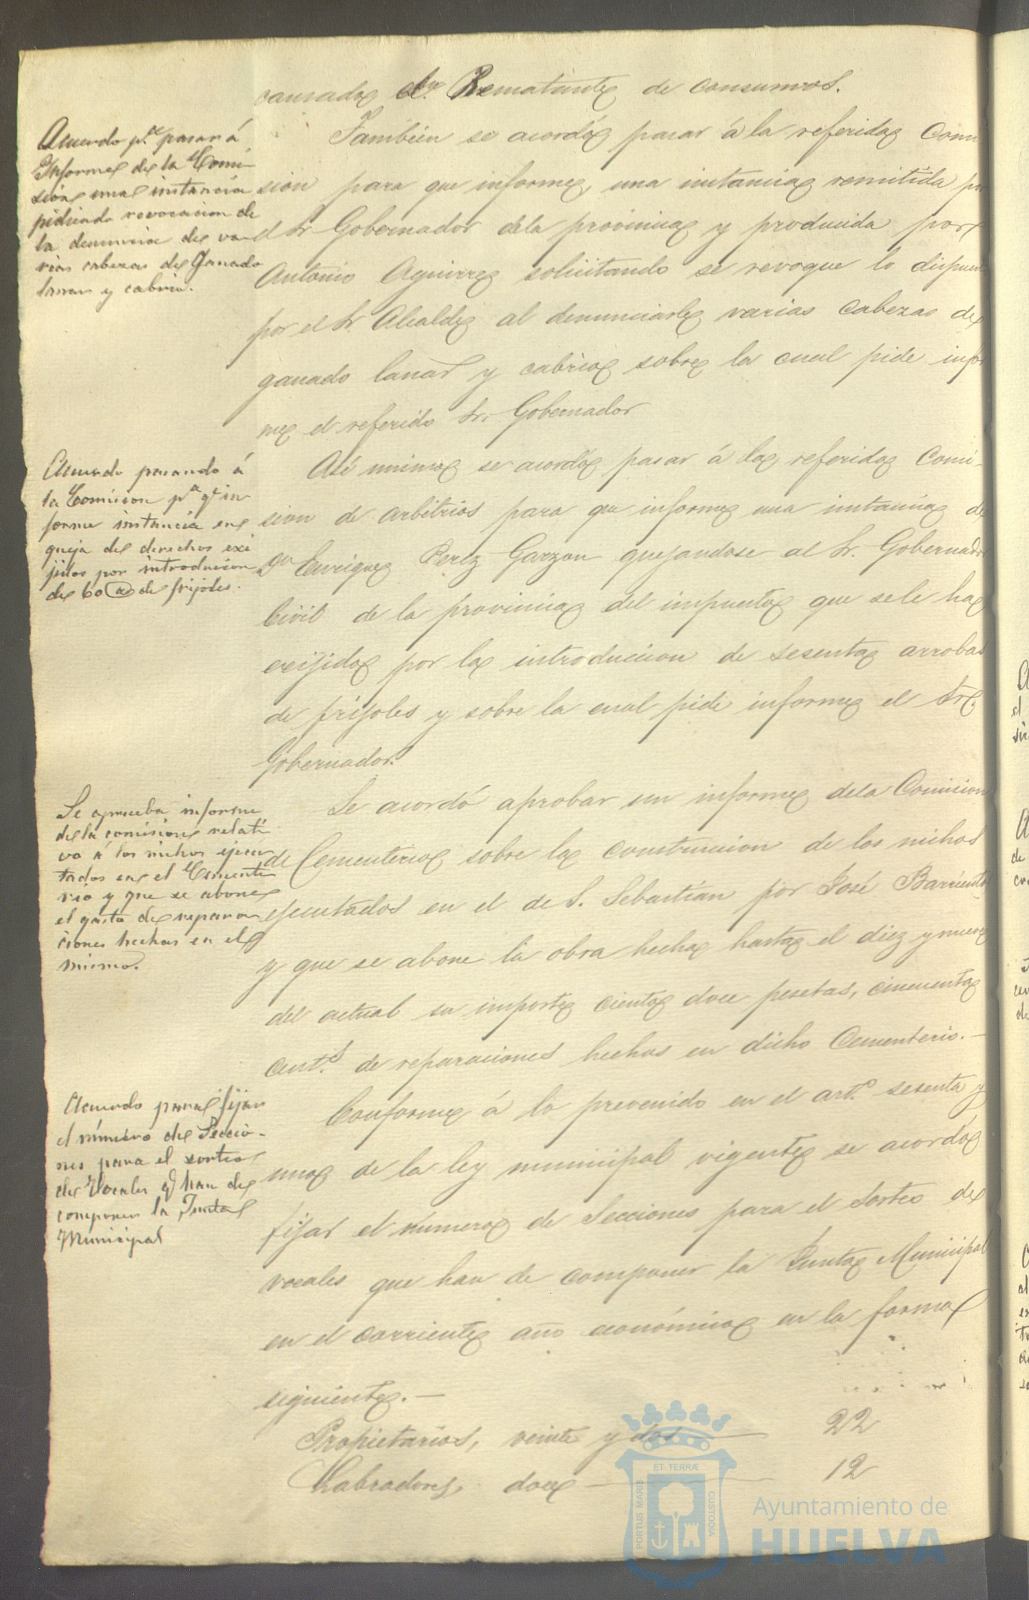 causada el Rematante de consumos.
Acuerdo p.ª pasar á
Informe de la Comi-
sión una instancia
pidiendo revocacion de
la denuncia de va-
rias cabezas de Ganado
lanar y cabrio.
Tambien se acordó pasar á la referida Comi
sion para que informe, una instancia remitida por
el Sr Gobernador dela provincia y producida por
Antonio Aguirre solicitando se revoque lo dispues
por el Sr Alcalde al denunciarle varias cabezas de
ganado lanar y cabrio sobre la cual pide infor
me el referido Sr. Gobernador
Acuerdo pasando á
la Comision p.ª q.e in-
forme instancia en
queja de derechos exi
jidos por introduccion
de 60 @ de frijoles.
Asi mismo se acordó pasar á la referida Comi-
sion de arbitrios para que informe una instancia de
Dn Enrique Perez Garzon quejandose al Sr. Gobernador
Civil de la provincia del impuesto que sele ha
exijido por la introduccion de sesenta arrobas
de frijoles y sobre la cual pide informe el Sr.
Gobernador.
Se aprueba informe
de la comision relati
vo á los nichos ejecu
tados en el Cemente
rio y que se abone
el gasto de repara
ciones hechas en el
mismo.
Se acordó aprobar un informe dela Comision
de Cementerio sobre la construccion de los nichos
ejecutados en el de S. Sebastian por José Barriento
y que se abone la obra hecha hasta el diez y nueve
del actual su importe ciento doce pesetas, cincuenta
cent.s de reparaciones hechas en dicho Cementerio.—
Acuerdo para fijar
el número de Seccio-
nes para el sorteo
de Vocales q.e han de
componer la Junta
Municipal
Conforme á lo prevenido en el art.º sesenta y
uno de la ley municipal vigente se acordó
fijar el número de Secciones para el sorteo de
vocales que han de componer la Junta Municipal
en el corriente año económico en la forma
siguiente.—
Propietarios, veinte y dos — 22
Labradores, doce — 12
PORTUS MARIS
ET TERRÆ
CUSTODIA
Ayuntamiento de
HUELVA